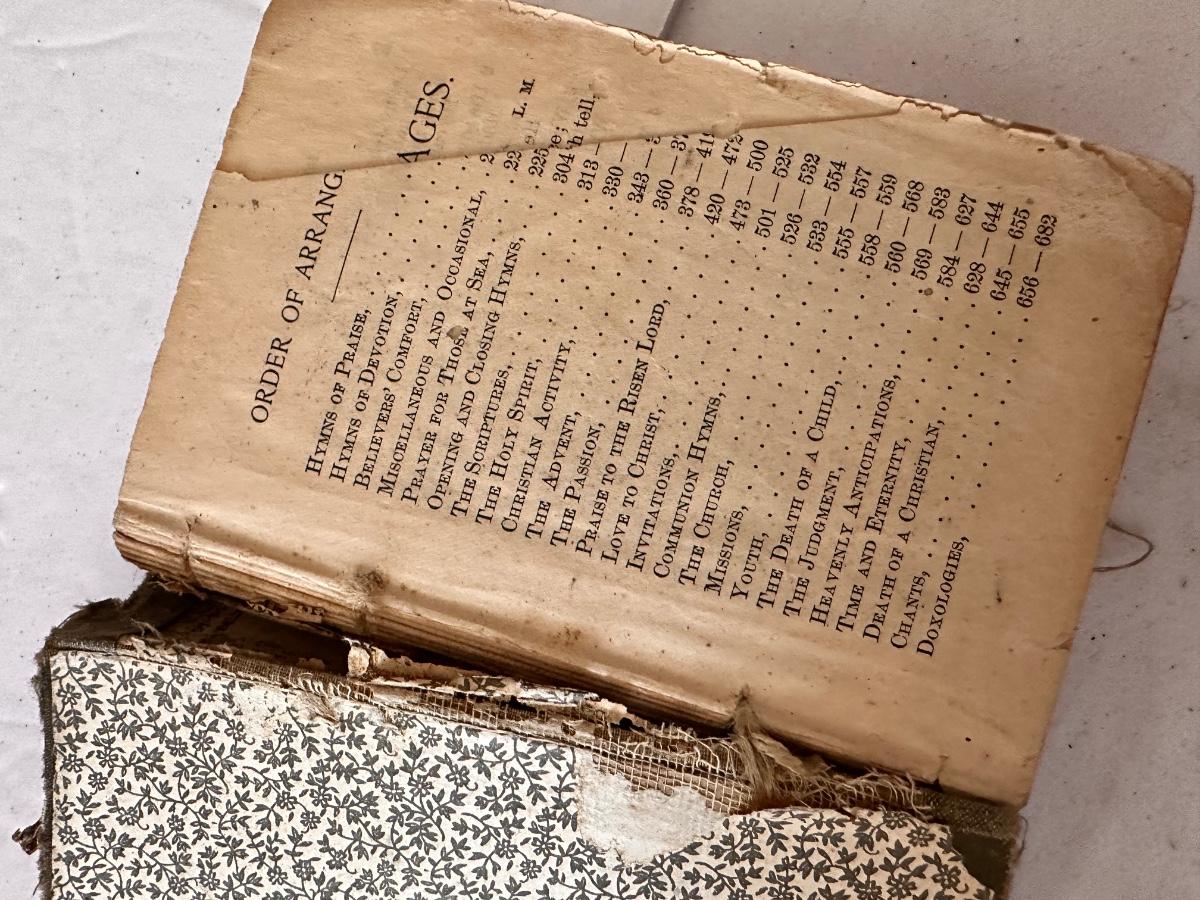 ORDER OF ARRANG AGES.
HYMNS OF PRAISE,
HYMNS OF DEVOTION,
BELIEVERS' COMFORT,
MISCELLANEOUS AND OCCASIONAL, 2
PRAYER FOR THOSE AT SEA, 22 L. M.
OPENING AND CLOSING HYMNS, 225
THE SCRIPTURES, 304
THE HOLY SPIRIT, 313— tell,
CHRISTIAN ACTIVITY, 330—
THE ADVENT, 343—
THE PASSION, 360—37
PRAISE TO THE RISEN LORD, 378—419
LOVE TO CHRIST, 420—472
INVITATIONS, 473—500
COMMUNION HYMNS, 501—525
THE CHURCH, 526—532
MISSIONS, 533—554
YOUTH, 555—557
THE DEATH OF A CHILD, 558—559
THE JUDGMENT, 560—568
HEAVENLY ANTICIPATIONS, 569—583
TIME AND ETERNITY, 584—627
DEATH OF A CHRISTIAN, 628—644
CHANTS, 645—655
DOXOLOGIES, 656—682